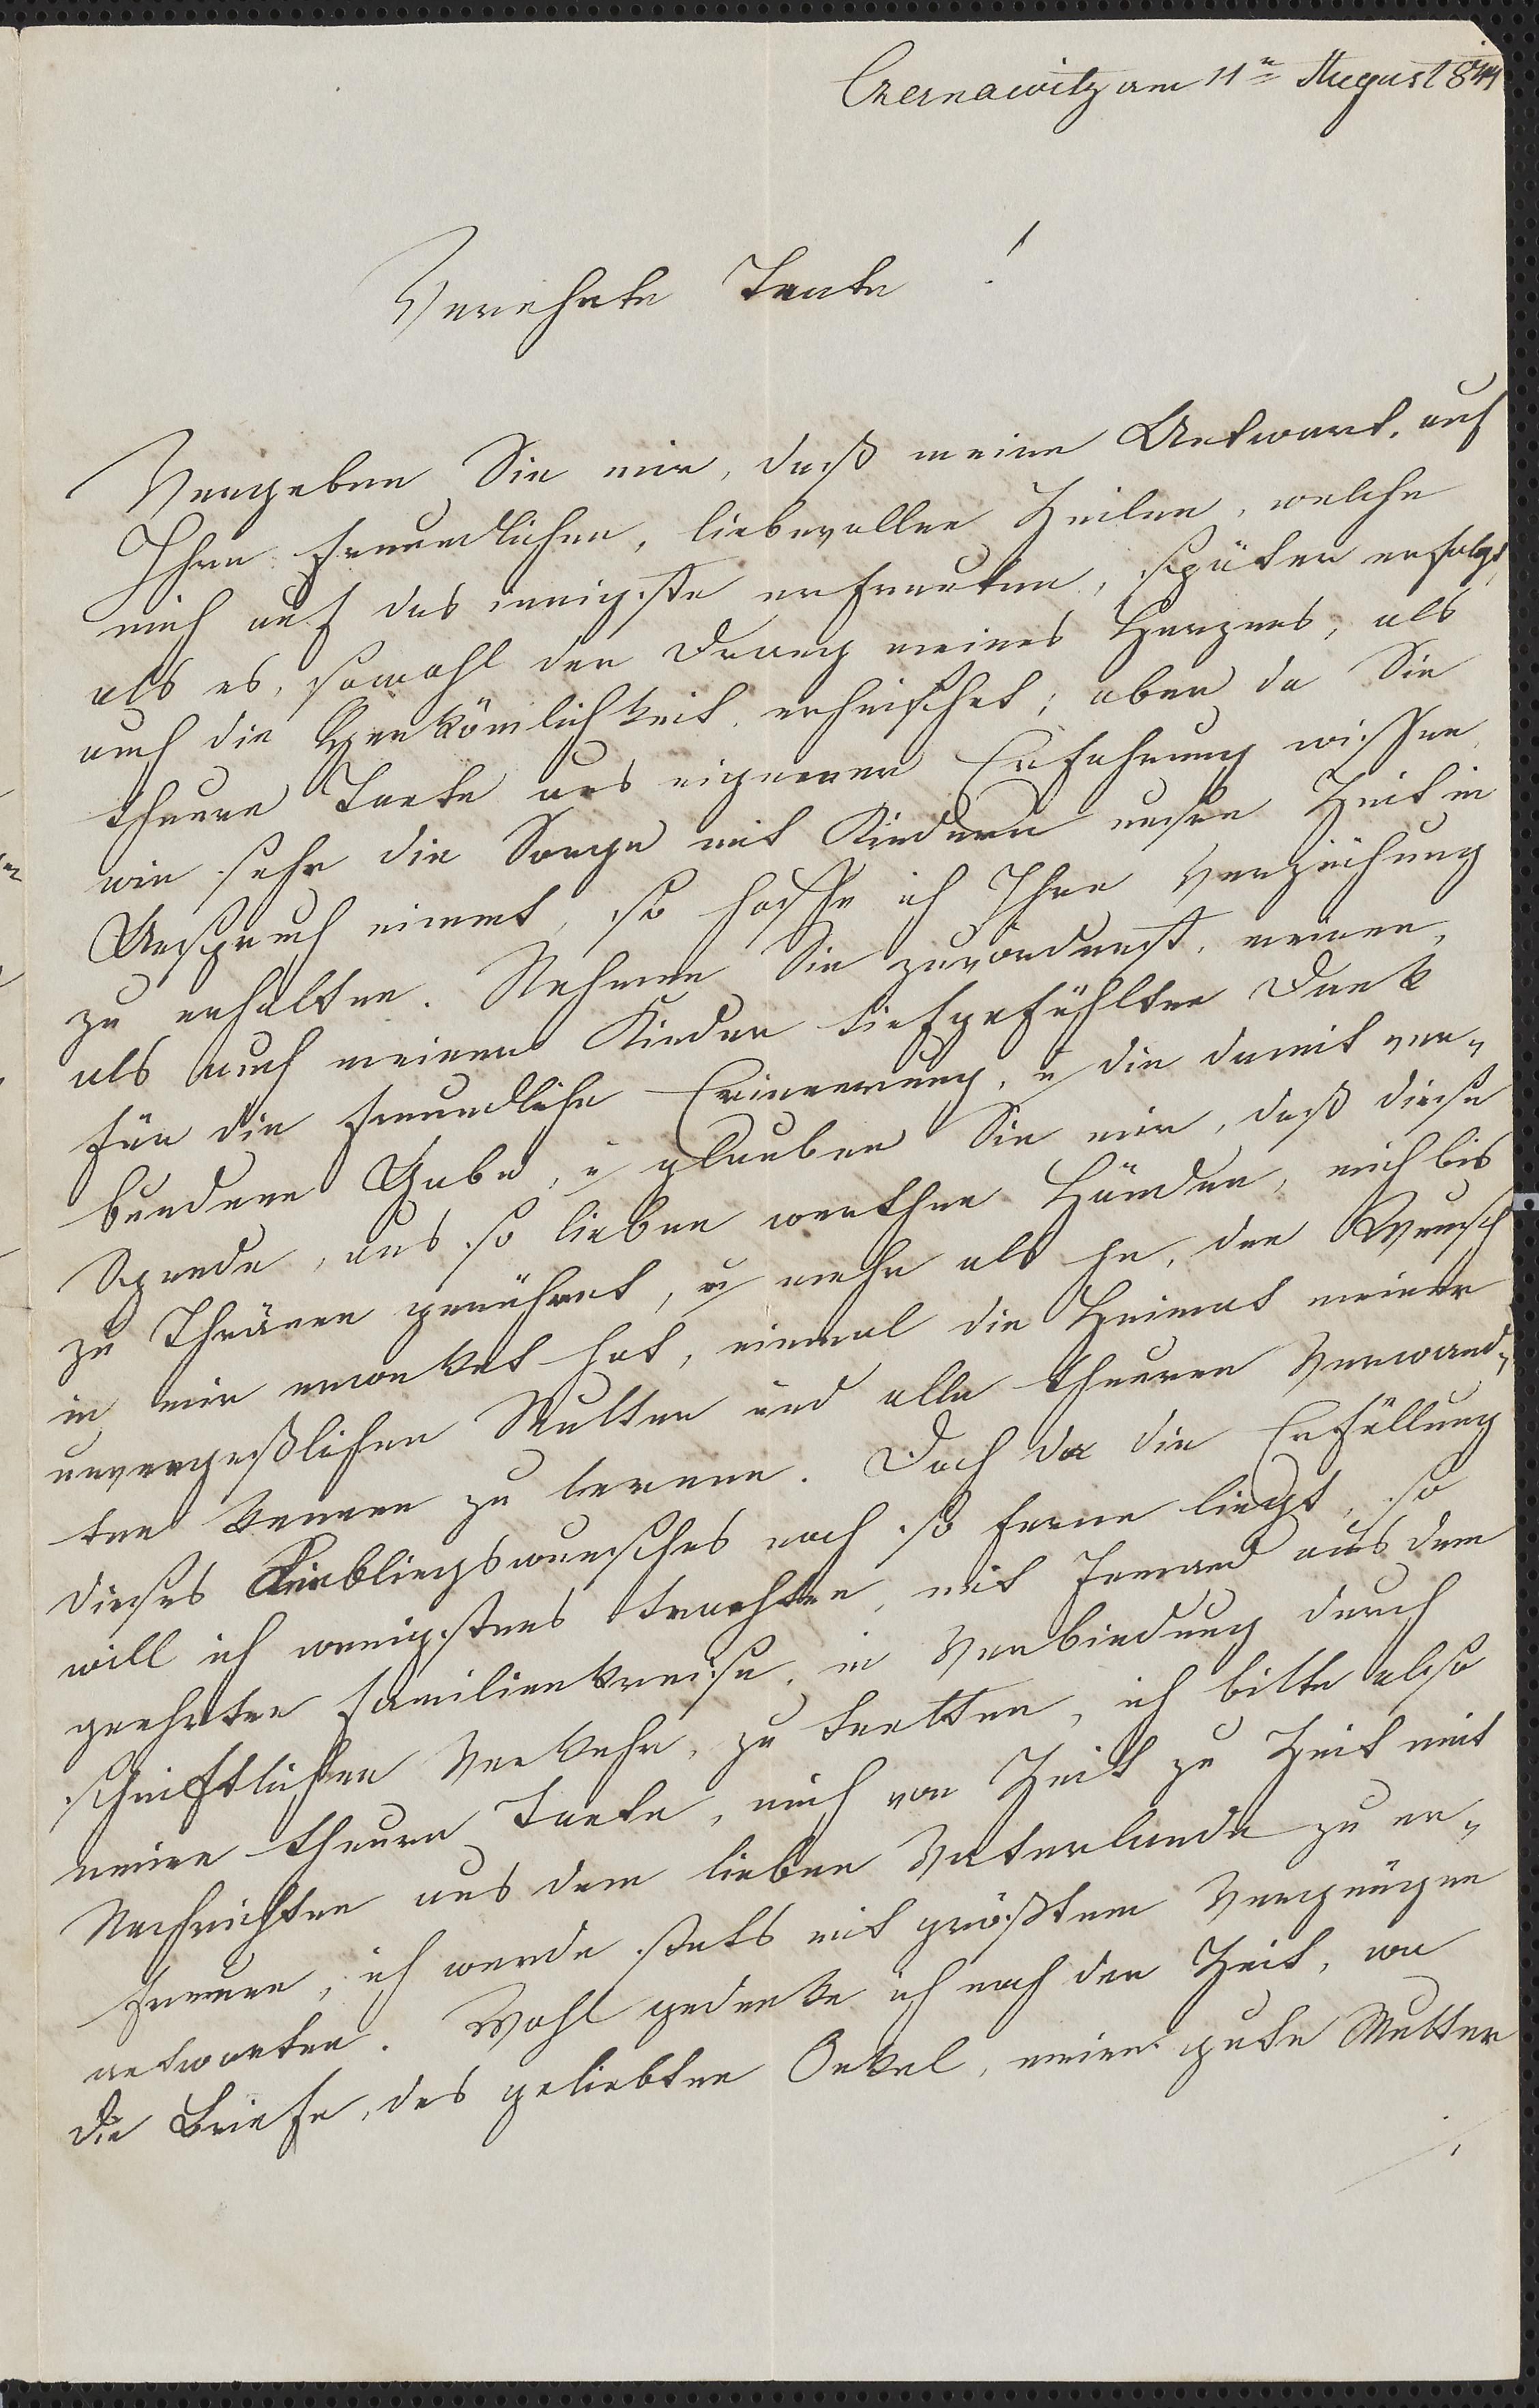 Czernawitz am 11n August 844
Verehrte Tante !
Vergeben Sie mir, daß meine Antwort, auf
Ihre freundlichen, liebevollen Zeilen, welche
mich auf das innigste erfreuten, später erfolgt,
als es, sowohl der Drang meines Herzens, als
auch die Herkömlichkeit erheischet; aber da Sie
theure Tante aus eigenen Erfahrung wissen
wie sehr die Sorge mit Kindern unsre Zeit in
Anspruch nimmt, so hoffe ich Ihre Verzeihung
zu erhalten. Nehmen Sie zuvorderst, meinen,
als auch meiner Kinder tiefgefühlten Dank
für die freundliche Erinnerung, u die damit ver-
bundene Gabe, u glauben Sie mir, daß diese
Spende, aus so lieben werthen Händen, mich bis
zu Thränen gerühret, u mehr als je, den Wunsch
in mir erweket hat, einmal die Heimat meiner
unvergeßlichen Mutter und alle theuren Verwand-
ten kennen zu lernen. Doch da die Erfüllung
dieses Lieblingswunsches noch so ferne liegt, so
will ich wenigstens trachten, mit Jemand aus dem
geehrten Familienkreise, in Verbindung durch
schriftlichen Verkehr, zu tretten, ich bitte also
meine theure Tante, mich von Zeit zu Zeit mit
Nachrichten aus dem lieben Vaterlande zu er-
freuen, ich werde stets mit größtem Vergnügen
antworten. Wohl gedenke ich noch der Zeit, wo
die Briefe, des geliebten Onkel, meine gute Mutter